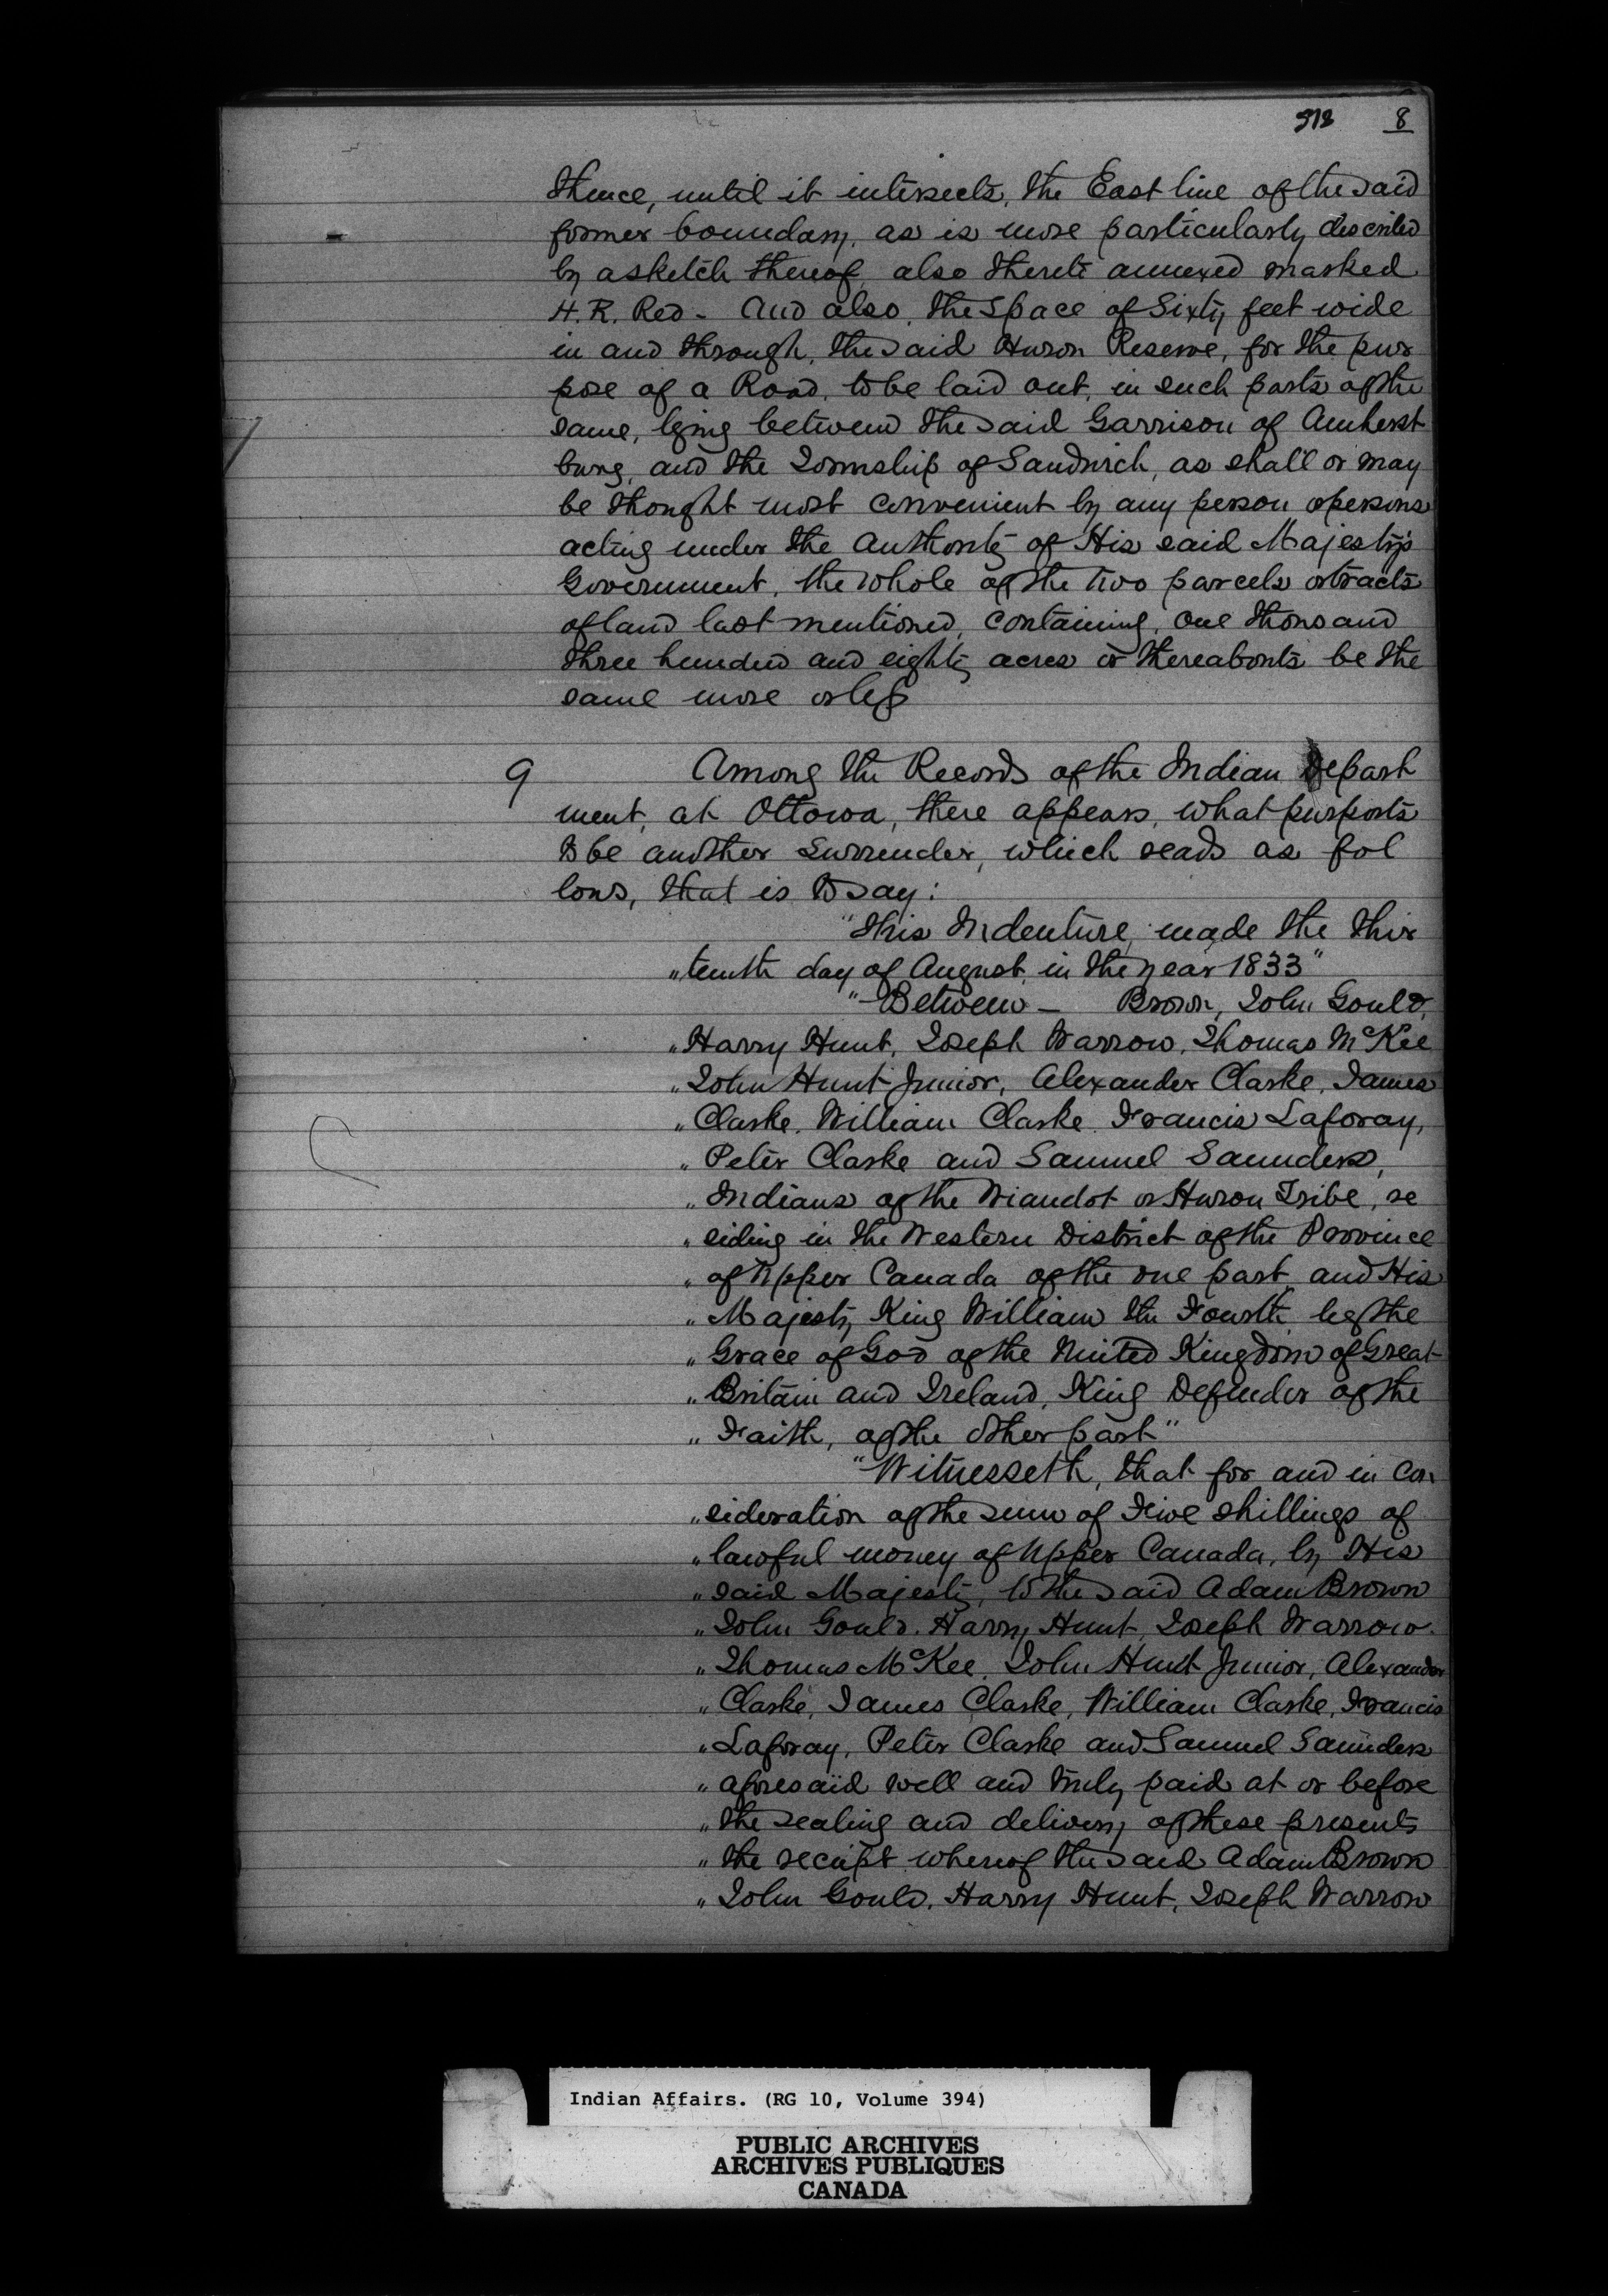 518 8
thence, until it intersects, the East line of the said
former boundary, as is more particularly described
by a sketch thereof, also thereto annexed marked
H. R. Red - And also, the space of Sixty feet wide
in and through, the said Huron Reserve, for the pur
pose of a Road, to be laid out, in such parts of the
same, lying between the said Garrison of Amherst
burg, and the Township of Sandwich, as shall or may
be thought most convenient by any person or persons
acting under the Authority of His said Majesty's
Government, the whole of the two parcels or tracts
of land last mentioned, containing, one thousand
three hundred and eighty acres or thereabouts be the
same more or less
9 Among the Records of the Indian Depart
ment, at Ottowa, there appears, what purports
to be another Surrender, which reads as fol
lows, that is to say:
"This Indenture, made the thir
"teenth day of August, in the year 1833"
"Between — Brown, John Gould,
"Harry Hunt, Joseph Warrow, Thomas McKee
"John Hunt Junior, Alexander Clarke, James
"Clarke, William Clarke, Francis Laforay,
"Peter Clarke and Samuel Saunders,
"Indians of the Wiandot or Huron Tribe, re
"siding in the Western District of the Province
"of Upper Canada of the one part, and His
"Majesty King William the Fourth by the
"Grace of God of the United Kingdom of Great
"Britain and Ireland, King Defender of the
"Faith, of the other part"
"Witnesseth, that for and in con
"sideration of the sum of Five shillings of
"lawful money of Upper Canada, by His
"said Majesty, to the said Adam Brown
"John Gould, Harry Hunt, Joseph Warrow.
"Thomas McKee, John Hunt Junior, Alexander
"Clarke, James Clarke, William Clarke, Francis
"Laforay, Peter Clarke and Samuel Saunders
"aforesaid well and truly paid at or before
"the sealing and delivery of these presents
"the receipt whereof the said Adam Brown
"John Gould, Harry Hunt, Joseph Warrow
Indian Affairs. (RG 10, Volume 394)
PUBLIC ARCHIVES
ARCHIVES PUBLIQUES
CANADA